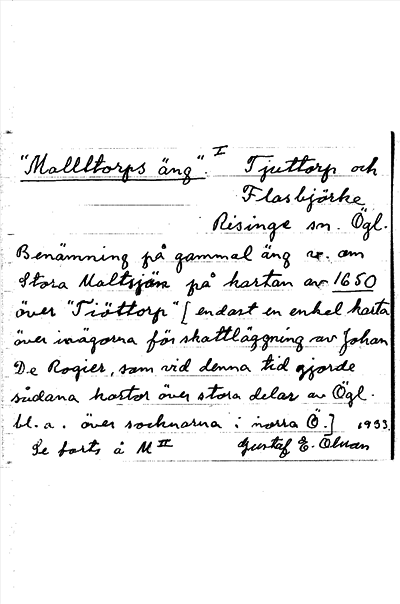 "Mallltorps äng". I Tjuttorp och
Flasbjörke
Risinge sn. Ögl.
Benämning på gammal äng v. om
Stora Maltsjön på kartan av 1650
över "Tiöttorp" [endast en enkel karta
över inägorna för skattläggning av Johan
De Rogier, som vid denna tid gjorde
sådana kartor över stora delar av Ögl.
bl. a. över socknarna i norra Ö.] 1933.
Se forts å M II Gustaf E. Olsson